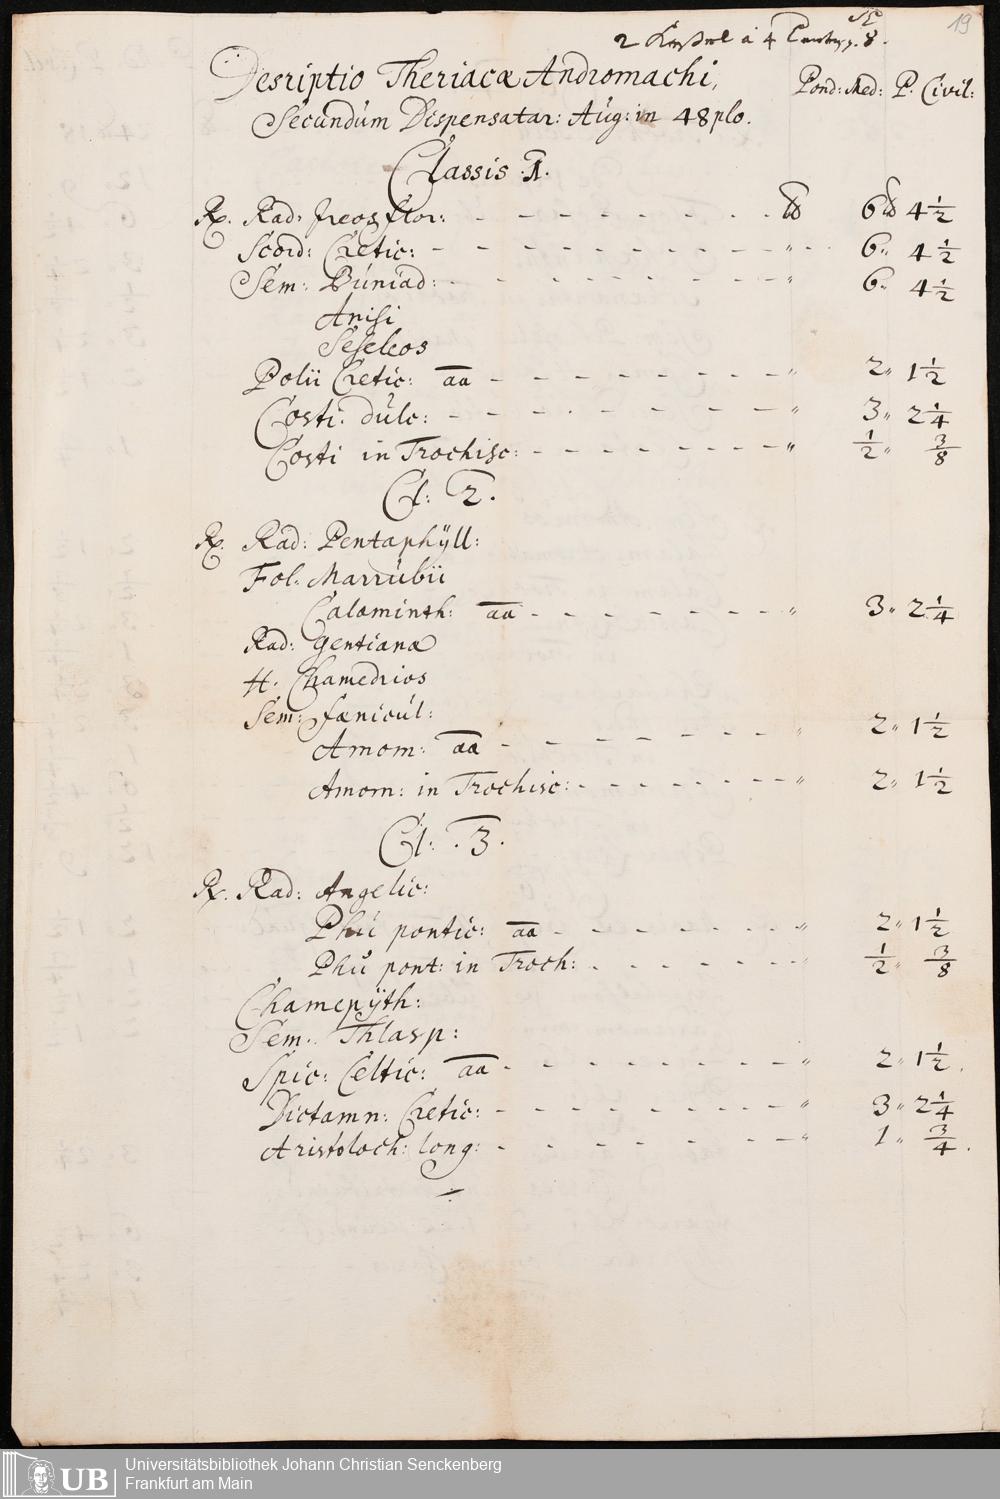 19
2 Kessel à 4
Desriptio Theriacæ Andromachi,
Pond: Med: P. Civil:
Secundùm Dispensatar: Aug: in 48plo.
Classis .1.
Rx. Rad: Jreos flor: - - - - - - - ℔ 6 ℔ 4 1/2
Scord: Cretic: - - - - - - - - - " 6 " 4 1/2
Sem: Buniad: - - - - - - - - - " 6 " 4 1/2
Anisi
Seseleos
Polii Cretic: aa - - - - - - - - " 2 " 1 1/2
Costi. dulc: - - - - - - - - - " 3 " 2 1/4
Costi in Trochisc: - - - - - - - " 1/2 " 3/8
Cl: 2.
Rx. Rad: Pentaphÿll:
Fol. Marrubii
Calaminth: aa - - - - - - - - " 3 " 2 1/4
Rad: Gentianæ
H. Chamedrios
Sem: fænicul:
Amom: aa - - - - - - - " 2 " 1 1/2
Amom: in Trochisc: - - - - - - " 2 " 1 1/2
Cl: .3.
Rx. Rad: Angelic:
Phu pontic: aa - - - - - - - " 2 " 1 1/2
Phu pont: in Troch: - - - - - - " 1/2 " 3/8
Chamepÿth:
Sem. Thlasp:
Spic: Celtic: aa - - - - - - - - " 2 " 1 1/2.
Dictamn: Cretic: - - - - - - - - " 3 " 2 1/4
Aristoloch: long: - - - - - - - - " 1 " 3/4.
UB
Universitätsbibliothek Johann Christian Senckenberg
Frankfurt am Main